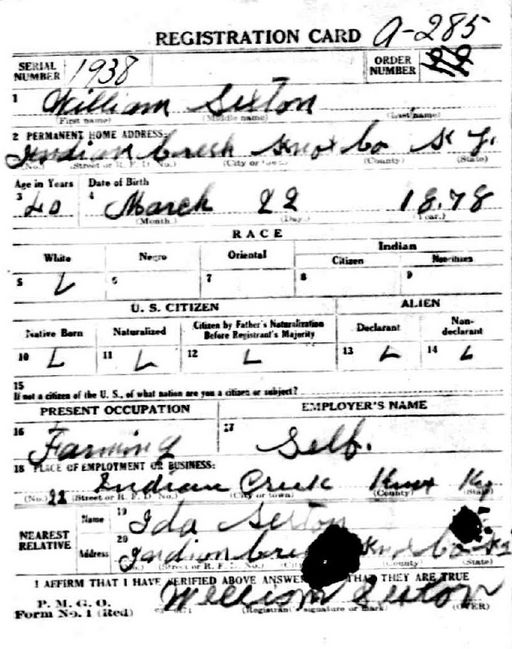 REGISTRATION CARD A-285
SERIAL NUMBER 1938 ORDER NUMBER
1 William Sexton
(First name) (Middle name) (Last name)
2 PERMANENT HOME ADDRESS:
Indian Creek Knox Co Ky.
(No.) (Street or R. F. D. No.) (City or town) (County) (State)
Age in Years Date of Birth
3 40 4 March 22 1878
(Month.) (Day.) (Year.)
RACE
White Negro Oriental Indian
Citizen Noncitizen
5 L 6 7 8 9
U. S. CITIZEN ALIEN
Native Born Naturalized Citizen by Father's Naturalization Before Registrant's Majority Declarant Non-declarant
10 L 11 L 12 L 13 L 14 L
15
If not a citizen of the U. S., of what nation are you a citizen or subject?
PRESENT OCCUPATION EMPLOYER'S NAME
16 Farming 17 Self.
18 PLACE OF EMPLOYMENT OR BUSINESS:
Indian Creek Knox Ky
(No.) (Street or R. F. D. No.) (City or town) (County) (State)
NEAREST RELATIVE Name 19 Ida Sexton
Address 20 Indian Knox Co Ky
(No.) (Street or R. F. D. No.) (County) (State)
I AFFIRM THAT I HAVE VERIFIED ABOVE THAT THEY ARE TRUE
P. M. G. O.
Form No. 1 (Red) William Sexton
(Registrant's signature or mark) (OVER)